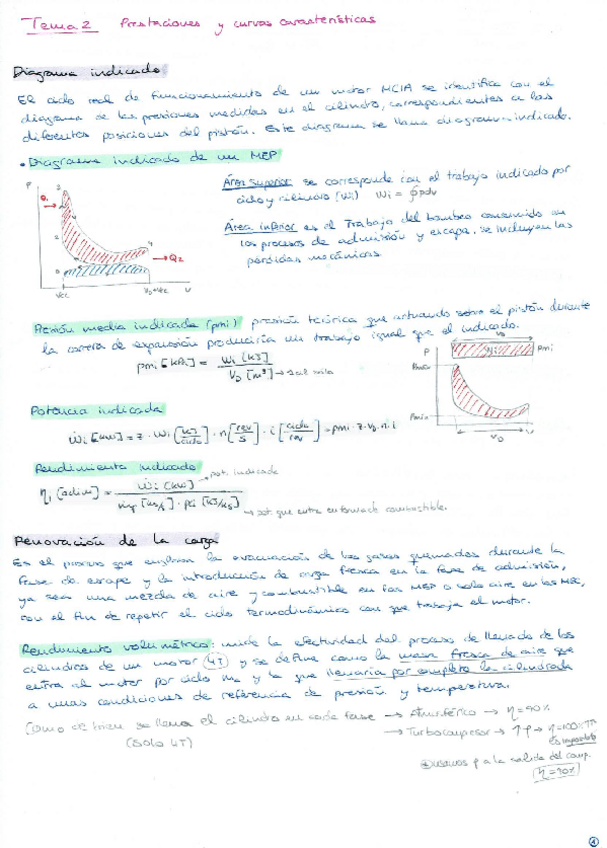 Tema 2 Prestaciones y curvas características
Diagrama indicado
El ciclo real de funcionamiento de un motor MCIA se identifica con el
diagrama de las presiones medidas en el cilindro, correspondientes a las
diferentes posiciones del pistón. Este diagrama se llama diagrama indicado.
• Diagrama indicado de un MEP
Área superior se corresponde con el trabajo indicado por
ciclo y cilindro (Wi) Wi = ∮pdv
Área inferior es el Trabajo del bombeo consumido en
los procesos de admisión y escape, se incluyen las
pérdidas mecánicas.
P
Q1
Q2
Vcc
VD+Vcc
V
Presión media indicada (pmi) presión teórica que actuando sobre el pistón durante
la carrera de expansión produciría un trabajo igual que el indicado.
pmi [kPa] = Wi [kJ] / VD [m³]
P
VD
Wi
pmi
Pmáx
Pmín
VD
V
Potencia indicada
Ẇi [kW] = z · Wi [kJ/ciclo] · n [rev/s] · i [ciclo/rev] = pmi · z · VD · n · i
Rendimiento indicado
ηi [adim] = Ẇi [kW] / ṁf [kg/s] · PCI [kJ/kg]
→ pot. indicada
→ pot que entra en forma de combustible.
Renovación de la carga
Es el proceso que engloba la evacuación de los gases quemados durante la
fase de escape y la introducción de carga fresca en la fase de admisión,
ya sea una mezcla de aire y combustible en los MEP o solo aire en los MEC,
con el fin de repetir el ciclo termodinámico con que trabaja el motor.
Rendimiento volumétrico: mide la efectividad del proceso de llenado de los
cilindros de un motor (4T) y se define como la masa fresca de aire que
entra al motor por ciclo ma y la que llenaría por completo la cilindrada
a unas condiciones de referencia de presión y temperatura.
Cómo de bien se llena el cilindro en cada fase → Atmosférico → η = 90%
(Solo 4T)
→ Turbocompresor → ↑ρ → η = 100%
Es imposible
usamos ρ a la salida del comp.
η = 90%
1